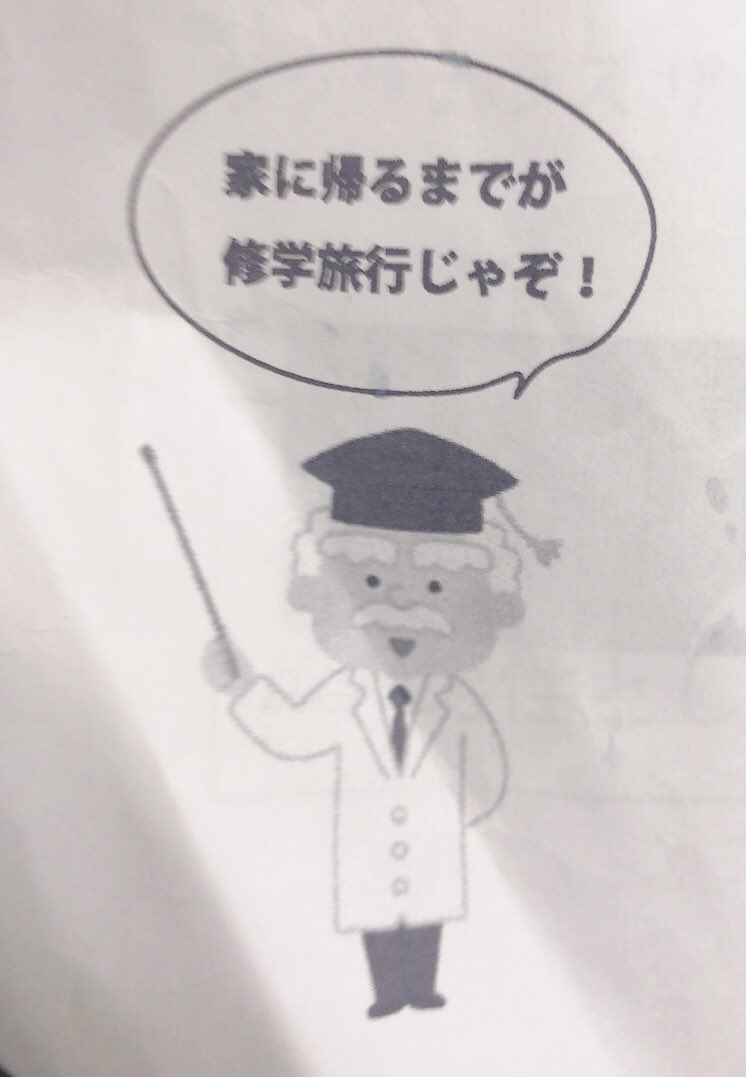 家に帰るまでが
修学旅行じゃぞ！